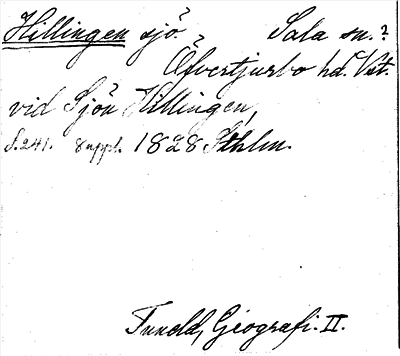 Hillingen sjö? Sala sn.?
Öfvertjurbo hd.? Vst.
vid Sjön Hillingen,
S. 241. 8 uppl. 1828 Sthlm.
Tuneld, Geografi. II.